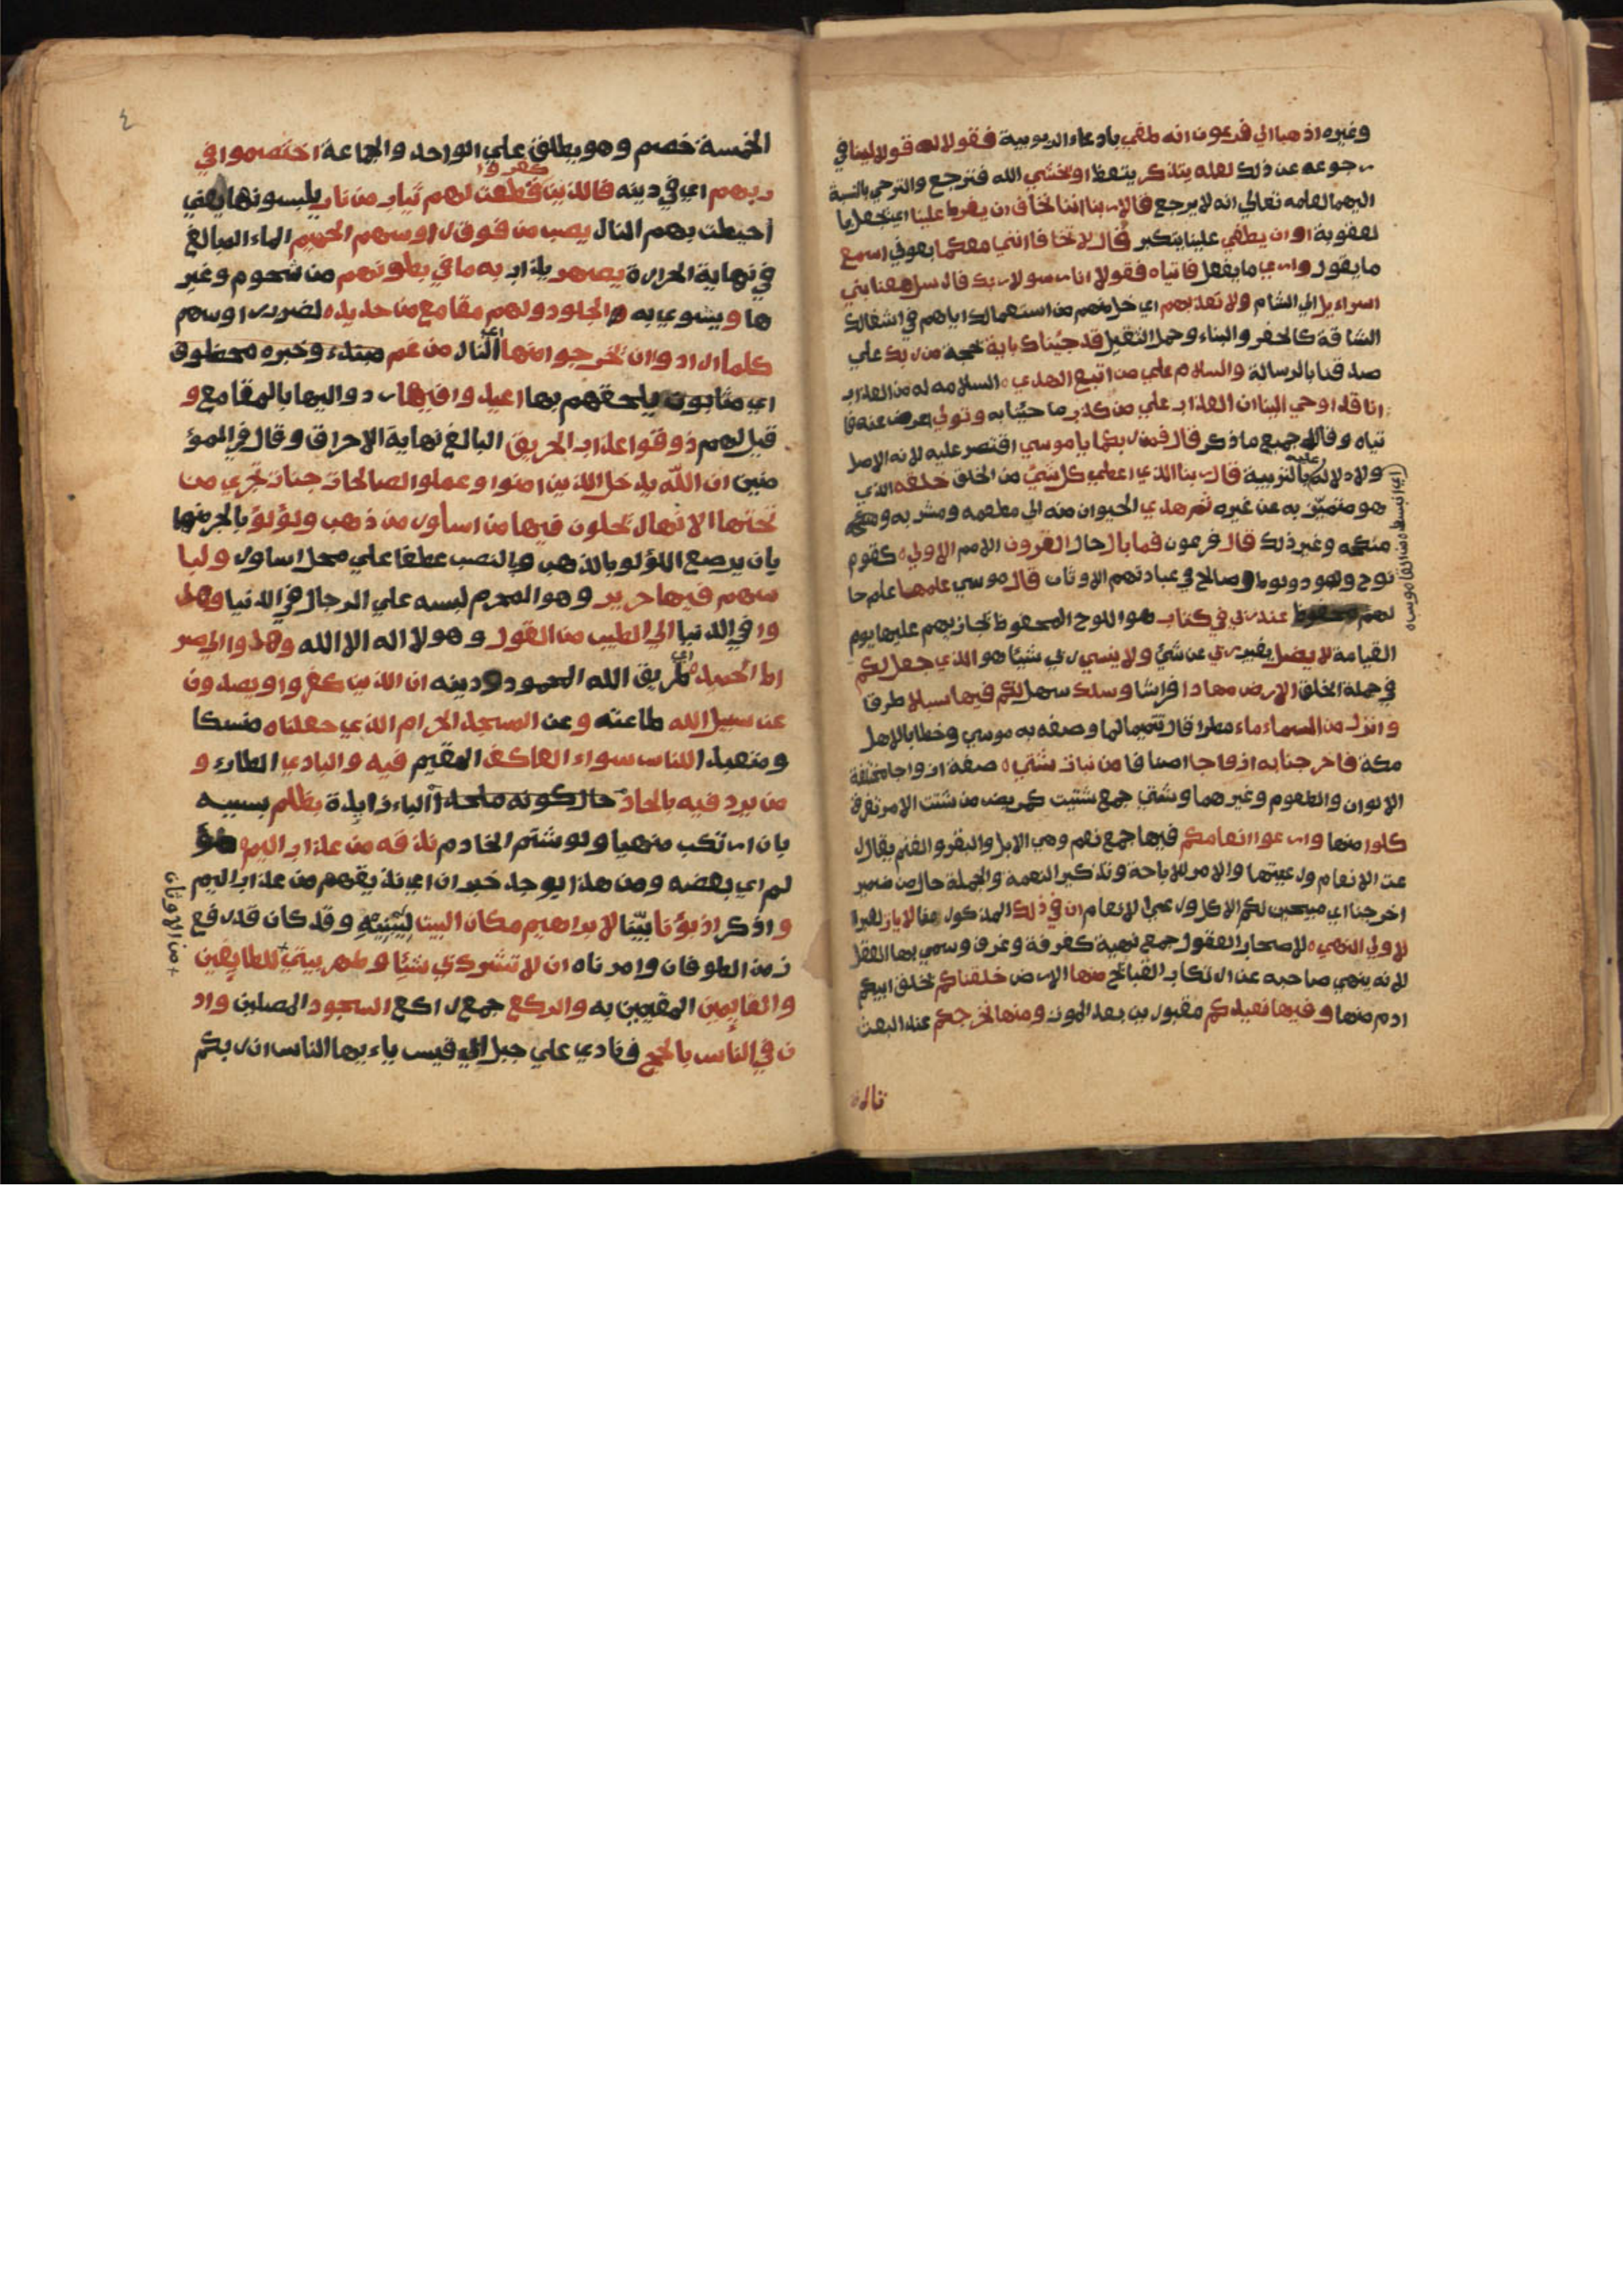 وغيره اذهبا الي فرعون انه طغي بادعاء الربوبية فقولا له قولا لينا في
رجوعه عن ذلك لعله يتذكر يتعظ او يخشي الله فيرجع والترجي بالنسبة
اليهما لعلمه تعالي انه لا يرجع قالا ربنا اننا نخاف ان يفرط علينا اي يعجل با
لعقوبة او ان يطغي علينا يتكبر قال لا تخافا انني معكما بعوني اسمع
ما يقول واري ما يفعل فاتياه فقولا انا رسولا ربك فارسل معنا بني
اسراءيل الي الشام ولا تعذبهم اي خل عنهم من استعمالك اياهم في اشغالك
الشاقة كالحفر والبناء وحمل الثقيل قد جيناك باية بحجة من ربك علي
صدقنا بالرسالة والسلام علي من اتبع الهدي السلامه له من العذاب
انا قد اوحي الينا ان العذاب علي من كذب ما جينا به وتولي اعرض عنه فا
تياه وقالا جميع ما ذكر قال فمن ربكما يا موسي اقتصر عليه لانه الاصل
ولادلاله عليه بالتربية قال ربنا الذي اعطي كل شيء من الخلق خلقه الذي
هو متميز به عن غيره ثم هدي الحيوان منه الي مطعمه ومشربه و
منكحه وغير ذلك قال فرعون فما بال حال القرون الامم الاولي كقوم
نوح وهود ولوط وصالح في عبادتهم الاوثان قال موسي علمها علم حا
لهم عند ربي في كتاب هو اللوح المحفوظ يجازيهم عليها يوم
القيامة لا يضل يغيب ربي عن شيء ولا ينسي ربي شيئا هو الذي جعل لكم
في جملة الخلق الارض مهادا فراشا وسلك سهل لكم فيها سبلا طرقا
وانزل من السماء ماء مطرا قال تتميما لما وصفه به موسي وخطابا لاهل
مكة فاخرجنا به ازواجا اصنافا من نبات شتي صفة ازواجا مختلفة
الالوان والطعوم وغيرهما وشتي جمع شتيت كمريض من شتت الامر تفرق
كلوا منها وارعوا انعامكم فيها جمع نعم وهي الابل والبقر والغنم يقال ر
عت الانعام ورعيتها والامر للاباحة وتذكير النعمة والجملة حال من ضمير
اخرجنا اي مبيحين لكم الاكل ورعي الانعام ان في ذلك المذكور هنا لايات لعبرا
لاولي النهي لاصحاب العقول جمع نهية كغرفة وغرف وسمي بها العقل
لانه ينهي صاحبه عن ارتكاب القبائح منها الارض خلقناكم بخلق ابيكم
ادم منها وفيها نعيدكم مقبورين بعد الموت ومنها نخرجكم عند البعث
تارة
٤
الخمسة خصم وهو يطلق علي الواحد والجماعة اختصموا في
ربهم اي في دينه فالذين كفروا قطعت لهم ثياب من نار يلبسونها يعني
احيطت بهم النار يصب من فوق رءوسهم الحميم الماء البالغ
في نهاية الحرارة يصهر يذاب به ما في بطونهم من شحوم وغير
ها ويشوي به والجلود ولهم مقامع من حديد لضرب رءوسهم
كلما ارادوا ان يخرجوا منها اي النار من غم مبتدء وخبره محظوق
اي يلحقهم بها اعيدوا فيها ردوا اليها بالمقامع و
قيل لهم ذوقوا عذاب الحريق البالغ نهاية الاحراق وقال في المؤ
منين ان الله يدخل الذين امنوا وعملوا الصالحات جنات تجري من
تحتها الانهار يحلون فيها من اساور من ذهب ولؤلؤ بالجر منها
بان يرصع اللؤلو بالذهب والنصب عطفا علي محل اساور ولبا
سهم فيها حرير وهو المحرم لبسه علي الرجال في الدنيا وهد
وا في الدنيا الي الطيب من القول وهو لا اله الا الله وهدوا الي صر
اط الحميد اي طريق الله المحمود ودينه ان الذين كفروا ويصدون
عن سبيل الله طاعته وعن المسجد الحرام الذي جعلناه منسكا
ومتعبدا للناس سواء العاكف المقيم فيه والبادي الطاري و
من يرد فيه بالحاد حال كونه ملحدا الباء زايدة بظلم بسببه
بان ارتكب منهيا ولو شتم الخادم نذقه من عذاب اليم مؤ
لم اي بعضه ومن هذا يوجد خبر ان اي نذيقهم من عذاب اليم
واذكر اذ بوّنا بيّنا لابراهيم مكان البيت ليبنيه وقد كان قد رفع
زمن الطوفان وامرناه ان لا تشرك بي شيئا وطهر بيتي للطايفين
والقايمين المقيمين به والركع جمع راكع السجود المصلين واذ
ن في الناس بالحج فنادي علي جبل ابي قبيس ياءيها الناس ان ربكم
من الاوثان